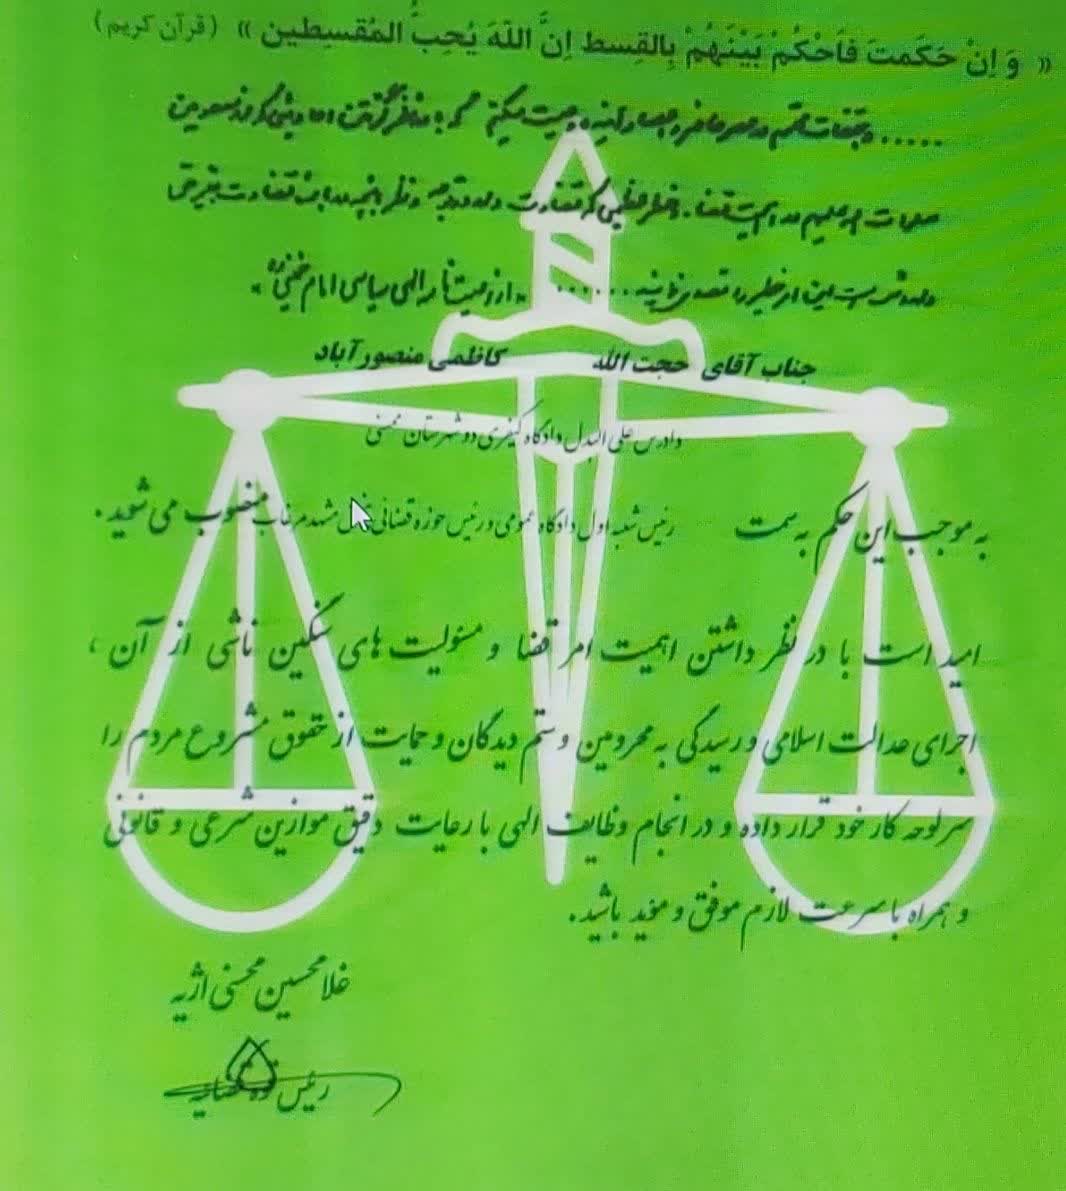 « وَ اِنْ حَکَمتَ فَاَحْکُمْ بَیْنَهُمْ بِالقِسط اِنَّ اللهَ یُحِبُّ المُقسِطین » (قرآن کریم)
..... و بقضات محترم در عصر حاضر و اعصار آینده وصیت میکنم که با در نظر گرفتن احادیثی که از معصومین
صلوات الله علیهم در اهمیت قضا و خطر عظیمی که قضاوت دارد و توجه و نظر بآنچه در باره قضاوت بغیر حق
وارد شده است این امر خطیر را تصدی نمایند ...... «از وصیت نامه الهی سیاسی امام خمینی ره»
جناب آقای حجت الله کاظمی منصورآباد
دادرس علی البدل دادگاه کیفری دو شهرستان ممسنی
به موجب این حکم به سمت رئیس شعبه اول دادگاه عمومی و رئیس حوزه قضائی بخش مشهد مرغاب منصوب می شوید.
امید است با در نظر داشتن اهمیت امر قضا و مسئولیت های سنگین ناشی از آن ،
اجرای عدالت اسلامی و رسیدگی به محرومین و ستم دیدگان و حمایت از حقوق مشروع مردم را
سرلوحه کار خود قرار داده و در انجام وظایف الهی با رعایت دقیق موازین شرعی و قانونی
و همراه با سرعت لازم موفق و مؤید باشید.
غلامحسین محسنی اژیه
رئیس قوه قضاییه